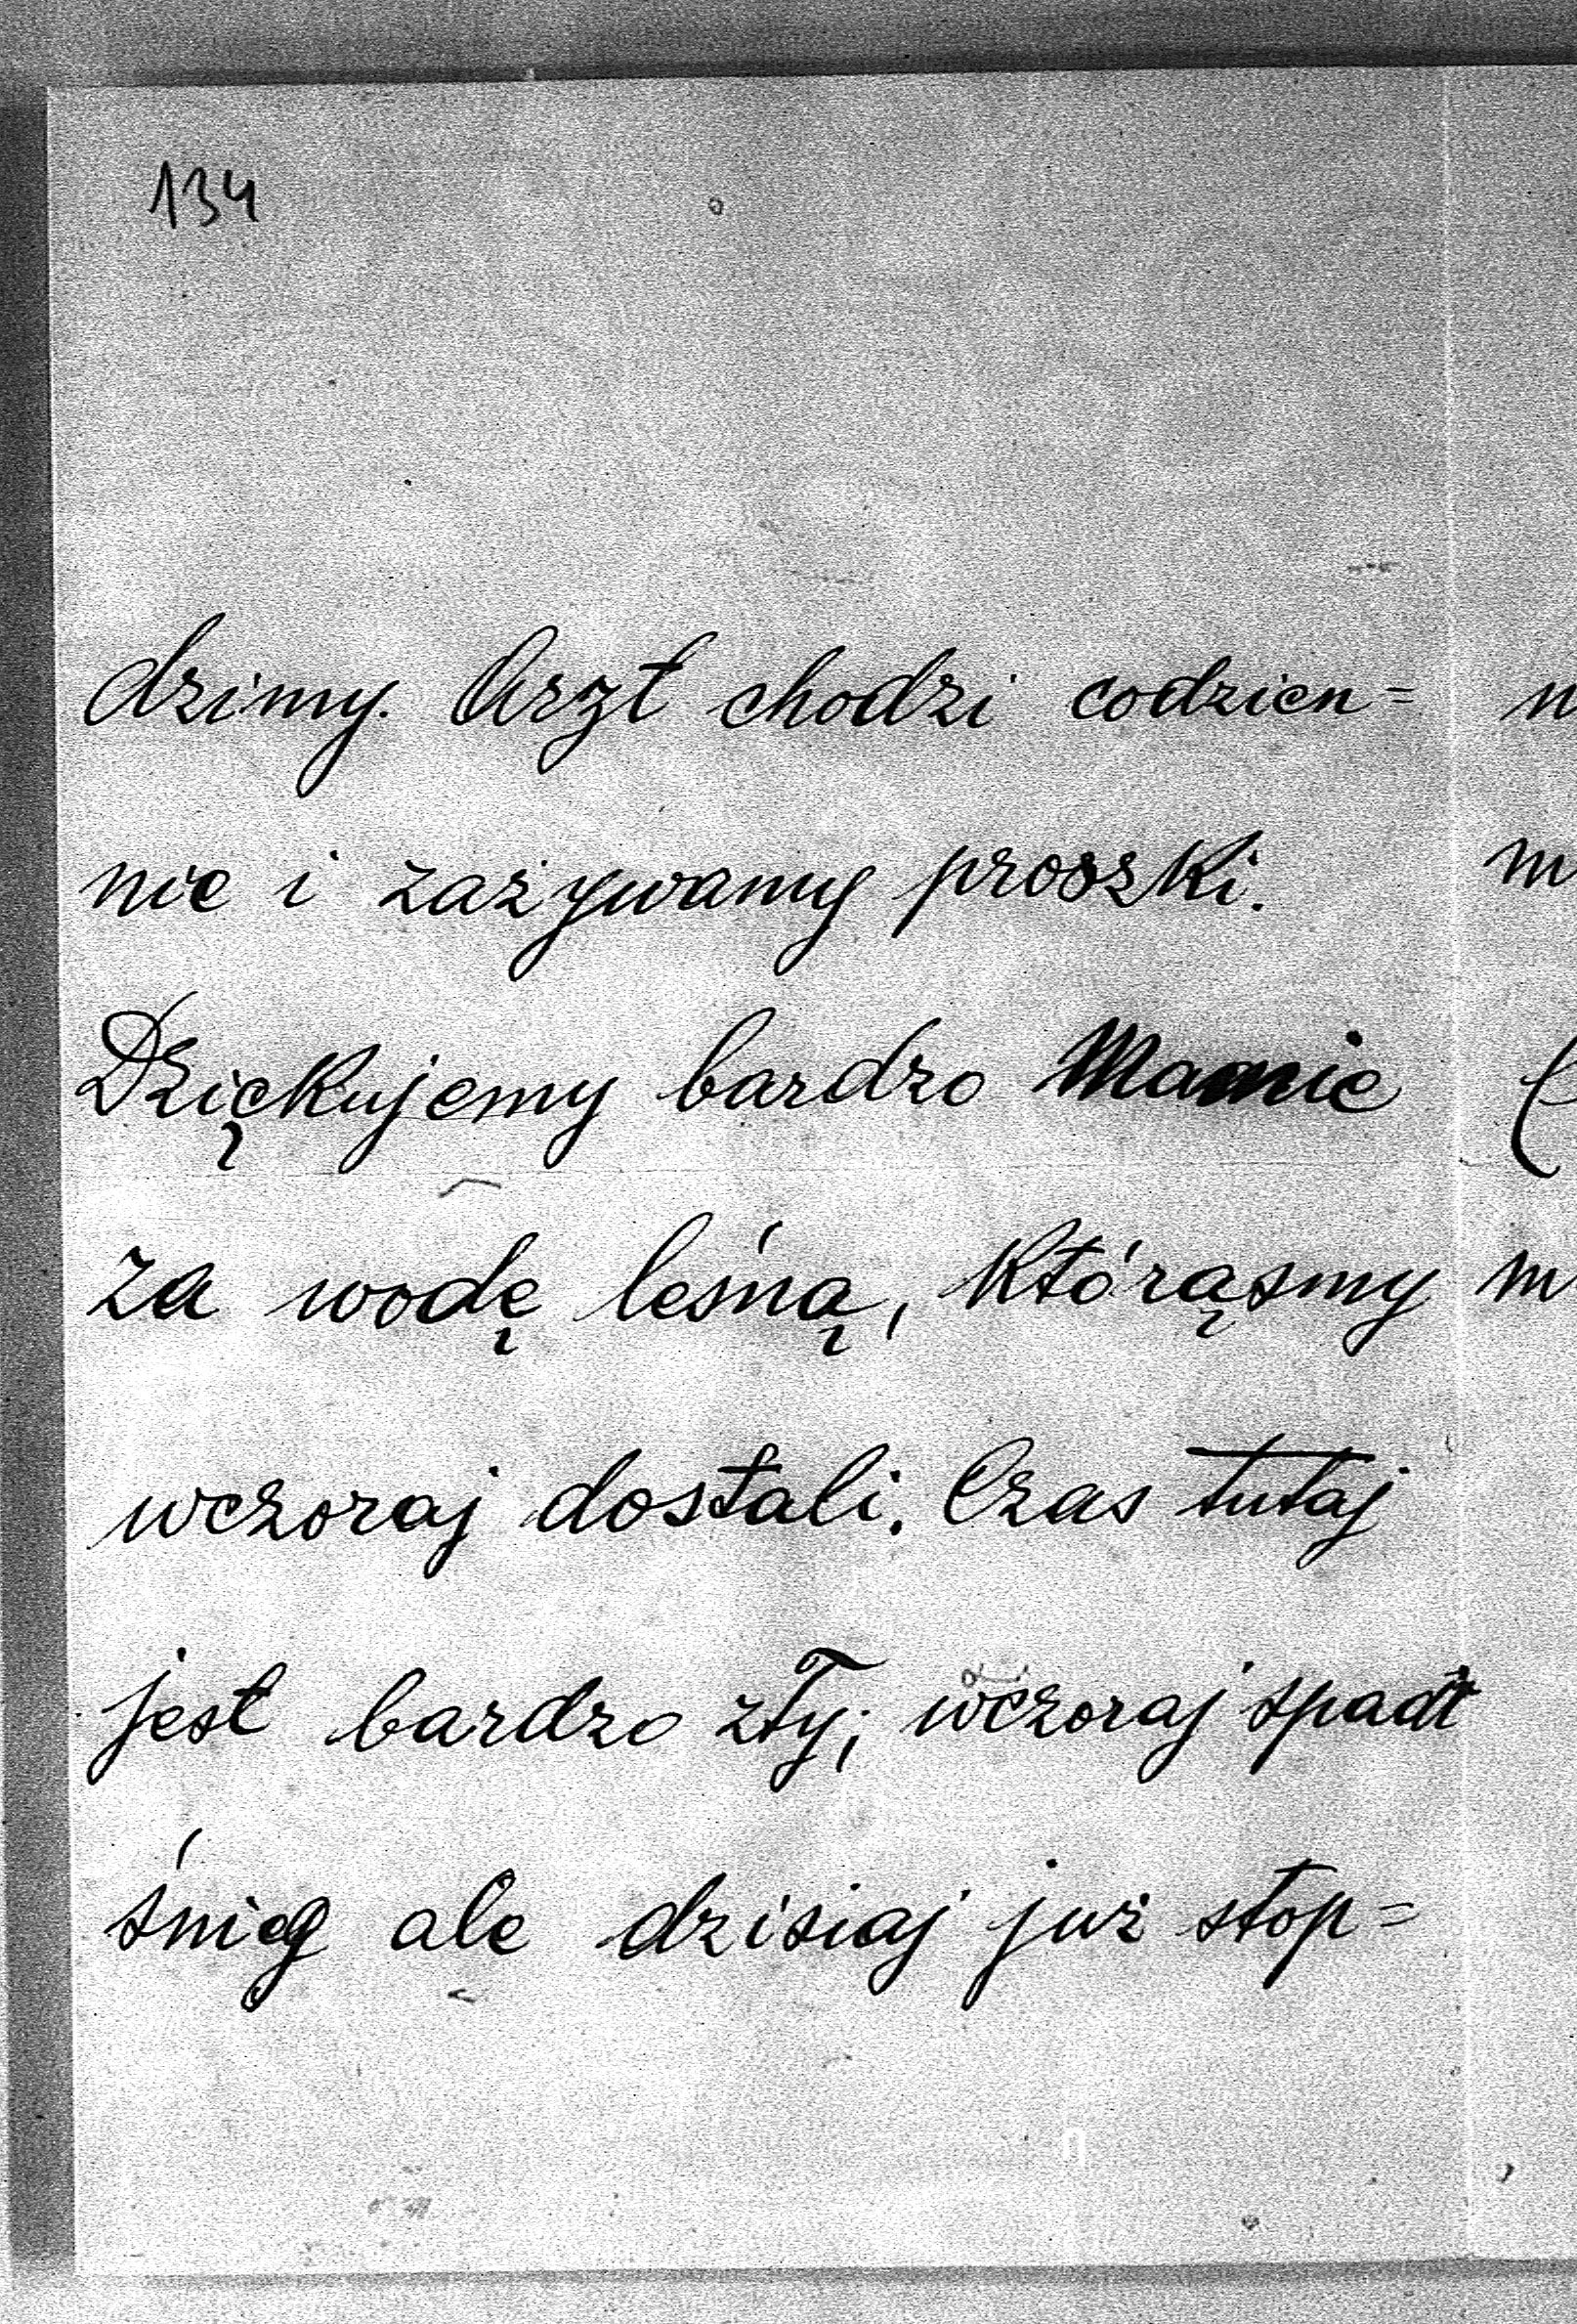 134
dzimy. Arzt chodzi codzien=
nie i zażywamy proszki.
Dziękujemy bardzo Mamie
za wodę leśną, którąsmy
wczoraj dostali. Czas tutaj
jest bardzo zły; wczoraj spadł
śnieg ale dzisiaj już stop=